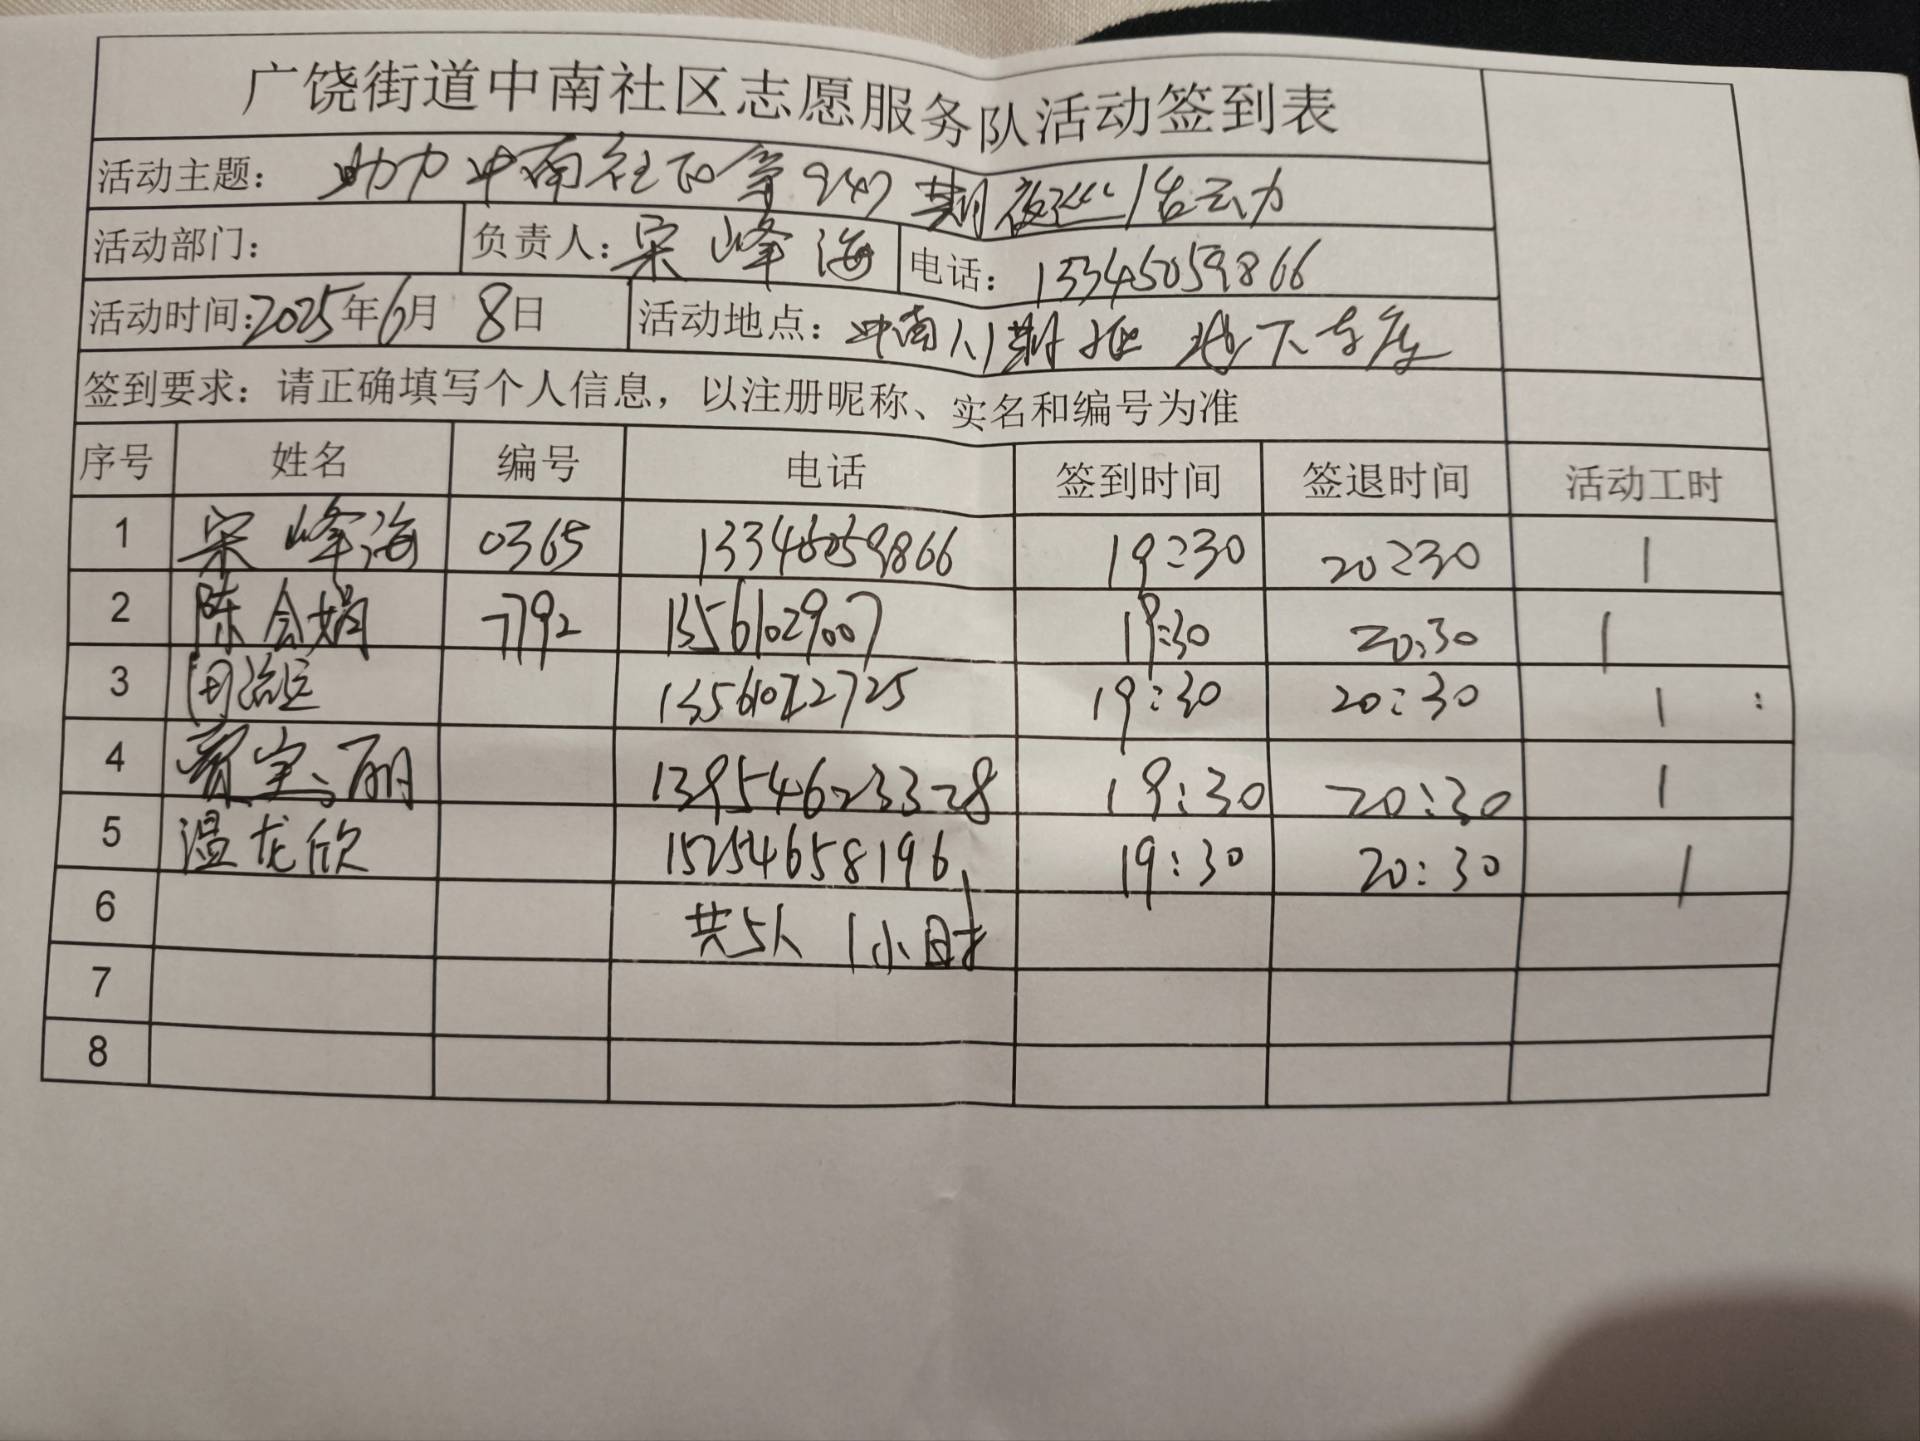 广饶街道中南社区志愿服务队活动签到表
活动主题： 助力中南社区第947期夜巡活动
活动部门： 负责人：宋峰海 电话：13345059866
活动时间：2025年6月8日 活动地点：中南 期 地下车库
签到要求：请正确填写个人信息，以注册昵称、实名和编号为准
序号 姓名 编号 电话 签到时间 签退时间 活动工时
1 宋峰海 0365 13345059866 19:30 20:30 1
2 陈会娟 7792 13561029007 19:30 20:30 1
3 13561072725 19:30 20:30 1
4 宝丽 13954623328 19:30 20:30 1
5 温龙欣 15254658196 19:30 20:30 1
6 共5人 1小时
7
8